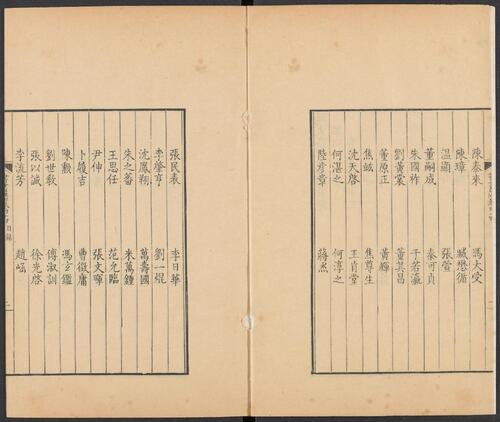 陳泰來 馮大受
陳璋 臧懋循
溫顯 張萱
董嗣成 秦可貞
朱國祚 于若瀛
劉黃裳 董其昌
董原正 黃輝
焦竑 焦尊生
沈天啓 王肯堂
何湛之 何淳之
陸彥章 蔣㷊
張民表 李日華
李肇亨 劉一焜
沈鳳翔 萬壽國
朱之蕃 米萬鍾
王思任 范允臨
尹伸 張文暉
卜履吉 曹徵庸
陳勲 馮玄鑑
劉世教 傅淑訓
張以誠 徐光啓
李流芳 趙崡